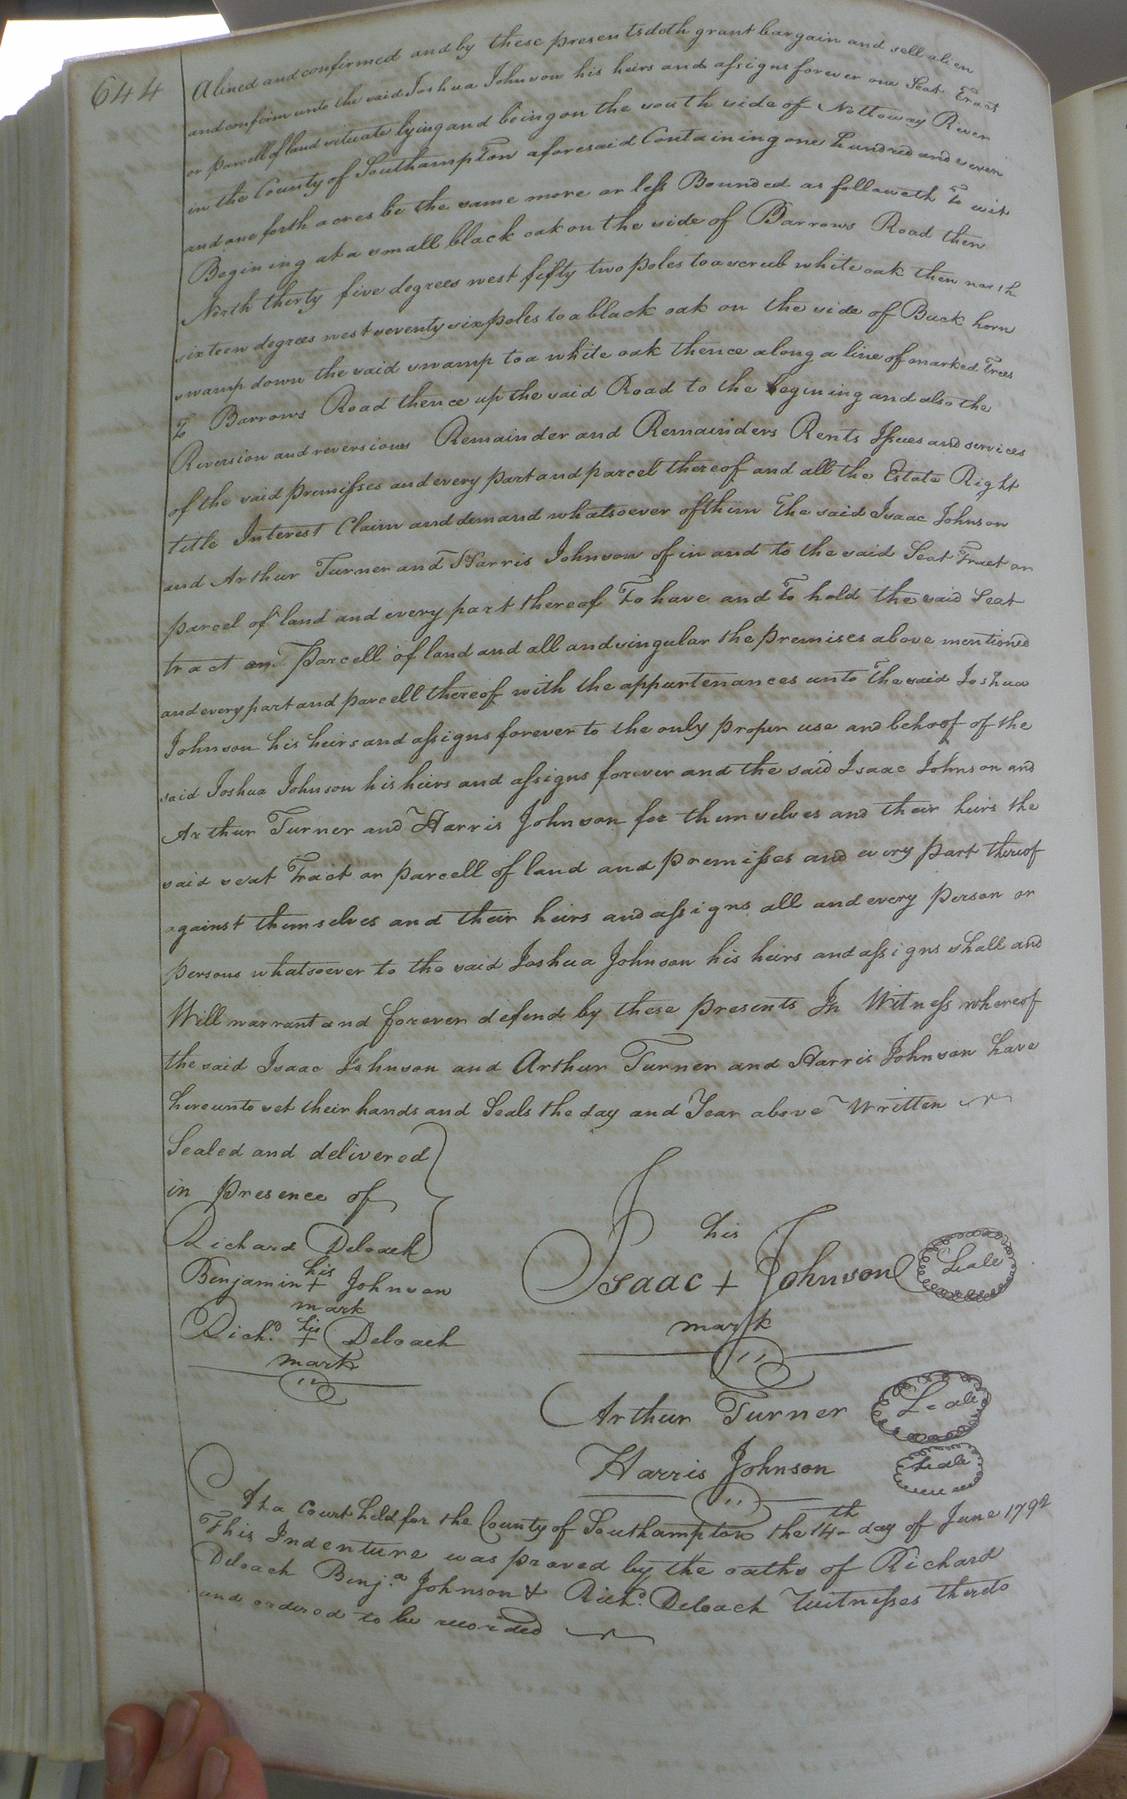 644
Aliened and confirmed and by these presents doth grant bargain and sell alien
and confirm unto the said Joshua Johnson his heirs and assigns forever one Seat Tract
or parcell of land situate lying and being on the south side of Nottoway River
in the County of Southampton aforesaid Containing one hundred and seven
and one forth acres be the same more or less Bounded as followeth To wit
Begining at a small black oak on the side of Barrows Road then
North thirty five degrees west fifty two poles to a scrub white oak then north
sixteen degrees west seventy six poles to a black oak on the side of Buck horn
swamp down the said swamp to a white oak thence along a line of marked Trees
To Barrows Road thence up the said Road to the begining and also the
Riversion and reversions Remainder and Remainders Rents Issues and services
of the said premisses and every part and parcel thereof and all the Estate Right
title Interest Claim and demand whatsoever of them The said Isaac Johnson
and Arthur Turner and Harris Johnson of in and to the said Seat Tract or
parcel of land and every part thereof To have and To hold the said Seat
tract or Parcell of land and all and singular the premises above mentioned
and every part and parcell thereof with the appurtenances unto The said Joshua
Johnson his heirs and assigns forever to the only proper use and behoof of the
said Joshua Johnson his heirs and assigns forever and the said Isaac Johnson and
Arthur Turner and Harris Johnson for themselves and their heirs the
said seat Tract or parcell of land and premisses and every part thereof
against themselves and their heirs and assigns all and every person or
persons whatsoever to the said Joshua Johnson his heirs and assigns shall and
Will warrant and forever defend by these presents In Witness whereof
the said Isaac Johnson and Arthur Turner and Harris Johnson have
hereunto set their hands and Seals the day and Year above Written
Sealed and delivered
in presence of
Richard Deloach
Benjamin his + Johnson
mark
Richd. his + Deloach
mark
his
Isaac + Johnson Seale
mark
Arthur Turner Seale
Harris Johnson Seale
At a Court held for the County of Southampton the 14th day of June 1792
This Indenture was proved by the oaths of Richard
Deloach Benj.a Johnson & Richd. Deloach Witnesses thereto
and ordered to be recorded